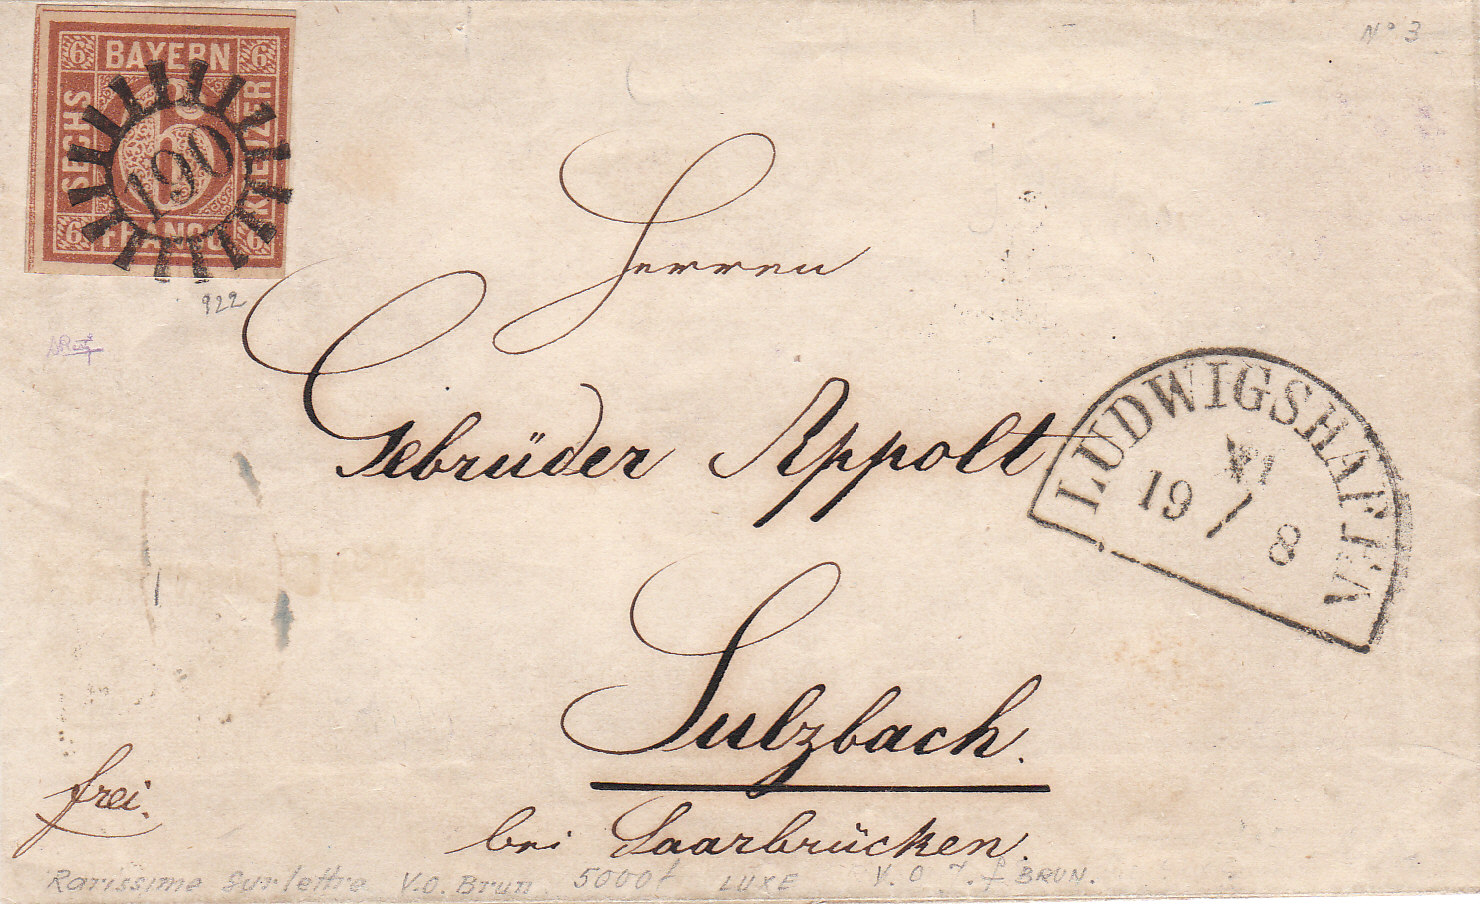 Nº 3
6 BAYERN 6
SECHS
KREUZER
190
6 FRANCO 6
922
Herren
Gebrüder Appolt
LUDWIGSHAF
VI
19 / 8
V. I. A
Sulzbach.
frei.
bei Saarbrücken.
Rarissime sur lettre V.O. Brun 5000f LUXE V. O BRUN.